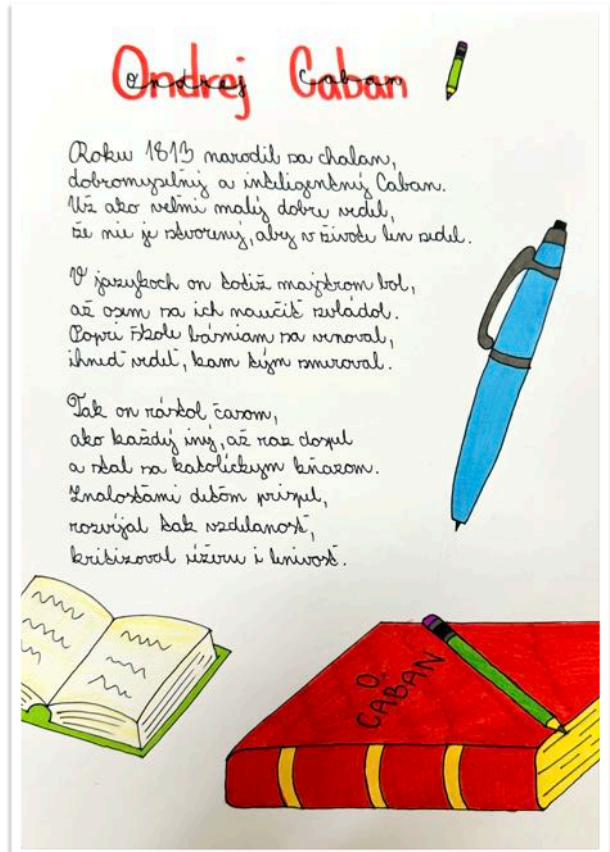 Ondrej Caban
Roku 1813 narodil sa chalan,
dobromyselný a inteligentný Caban.
Už ako veľmi malý dobre vedel,
že nie je stvorený, aby v živote len sedel.
V jazykoch on totiž majstrom bol,
až osem sa ich naučiť zvládol.
Popri škole básniam sa venoval,
ihneď vedel, kam tým smeroval.
Tak on rástol časom,
ako každý iný, až raz dospel
a stal sa katolíckym kňazom.
Znalosťami deťom prispel,
rozvíjal tak vzdelanosť,
kritizoval úžeru i lenivosť.
O.
CABAN